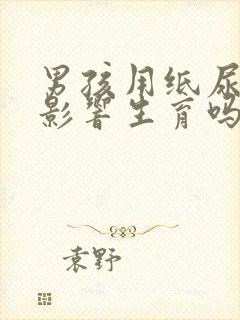 男孩用纸尿
影响生育吗
袁野